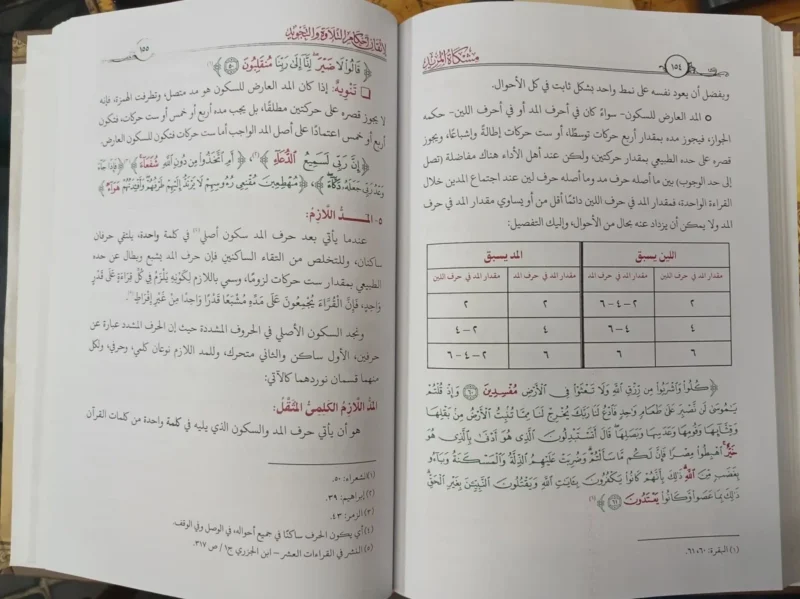 ١٥٤
مشكاة المريد
ويفضل أن يعود نفسه على نمط واحد بشكل ثابت في كل الأحوال.
○ المد العارض للسكون- سواءً كان في أحرف المد أو في أحرف اللين- حكمه
الجواز، فيجوز مده بمقدار أربع حركات توسطًا، أو ست حركات إطالةً وإشباعًا، ويجوز
قصره على حده الطبيعي بمقدار حركتين، ولكن عند أهل الأداء هناك مفاضلة (تصل
إلى حد الوجوب) بين ما أصله حرف مد وما أصله حرف لين عند اجتماع المدين خلال
القراءة الواحدة، فمقدار المد في حرف اللين دائمًا أقل من أو يساوي مقدار المد في حرف
المد ولا يمكن أن يزداد عنه بحال من الأحوال، وإليك التفصيل:
اللين يسبق المد يسبق
مقدار المد في حرف اللين مقدار المد في حرف المد مقدار المد في حرف المد مقدار المد في حرف اللين
٢ ٢-٤-٦ ٢ ٢
٤ ٤-٦ ٤ ٢-٤
٦ ٦ ٦ ٢-٤-٦
﴿ كُلُوا۟ وَٱشْرَبُوا۟ مِن رِّزْقِ ٱللَّهِ وَلَا تَعْثَوْا۟ فِى ٱلْأَرْضِ مُفْسِدِينَ ٦٠ وَإِذْ قُلْتُمْ
يَـٰمُوسَىٰ لَن نَّصْبِرَ عَلَىٰ طَعَامٍ وَٰحِدٍ فَٱدْعُ لَنَا رَبَّكَ يُخْرِجْ لَنَا مِمَّا تُنۢبِتُ ٱلْأَرْضُ مِنۢ بَقْلِهَا
وَقِثَّآئِهَا وَفُومِهَا وَعَدَسِهَا وَبَصَلِهَا ۖ قَالَ أَتَسْتَبْدِلُونَ ٱلَّذِى هُوَ أَدْنَىٰ بِٱلَّذِى هُوَ
خَيْرٌ ۚ ٱهْبِطُوا۟ مِصْرًا فَإِنَّ لَكُم مَّا سَأَلْتُمْ ۗ وَضُرِبَتْ عَلَيْهِمُ ٱلذِّلَّةُ وَٱلْمَسْكَنَةُ وَبَآءُو
بِغَضَبٍ مِّنَ ٱللَّهِ ۗ ذَٰلِكَ بِأَنَّهُمْ كَانُوا۟ يَكْفُرُونَ بِـَٔايَـٰتِ ٱللَّهِ وَيَقْتُلُونَ ٱلنَّبِيِّـۧنَ بِغَيْرِ ٱلْحَقِّ ۗ
ذَٰلِكَ بِمَا عَصَوا۟ وَّكَانُوا۟ يَعْتَدُونَ ٦١ ﴾(١)
(١) البقرة: ٦٠،٦١.
لإتقان أحكام التلاوة والتجويد
١٥٥
﴿ قَالُوا۟ لَا ضَيْرَ ۖ إِنَّآ إِلَىٰ رَبِّنَا مُنقَلِبُونَ ٥٠ ﴾
❑ تنويه: إذا كان المد العارض للسكون هو مد متصل، وتطرفت الهمزة، فإنه
لا يجوز قصره على حركتين مطلقًا، بل يجب مده أربع أو خمس أو ست حركات، فتكون
أربع أو خمس اعتمادًا على أصل المد الواجب أما ست حركات فتكون للسكون العارض.
﴿ إِنَّ رَبِّى لَسَمِيعُ ٱلدُّعَآءِ ﴾(٢)، ﴿ أَمِ ٱتَّخَذُوا۟ مِن دُونِ ٱللَّهِ شُفَعَآءَ ﴾(٣)، ﴿ فَإِذَا جَآءَ
وَعْدُ رَبِّى جَعَلَهُۥ دَكَّآءَ ﴾، ﴿ مُهْطِعِينَ مُقْنِعِى رُءُوسِهِمْ لَا يَرْتَدُّ إِلَيْهِمْ طَرْفُهُمْ ۖ وَأَفْـِٔدَتُهُمْ هَوَآءٌ ﴾
٥- المَدُّ اللَّازِمُ:
عندما يأتي بعد حرف المد سكون أصلي(٤) في كلمة واحدة، يلتقي حرفان
ساكنان، وللتخلص من التقاء الساكنين فإن حرف المد يشبع ويطال عن حده
الطبيعي بمقدار ست حركات لزومًا، وسمي باللازم لِكَوْنِهِ يَلْزَمُ فِي كُلِّ قِرَاءَةٍ عَلَى قَدْرٍ
وَاحِدٍ، فَإِنَّ القُرَّاءَ يُجْمِعُونَ عَلَى مَدِّهِ مُشْبَعًا قَدْرًا وَاحِدًا مِنْ غَيْرِ إِفْرَاطٍ
ونجد السكون الأصلي في الحروف المشددة حيث إن الحرف المشدد عبارة عن
حرفين، الأول ساكن والثاني متحرك، وللمد اللازم نوعان كلمي، وحرفي، ولكل
منهما قسمان نوردهما كالآتي:
المَدُّ اللَّازِمُ الكَلِمِيُّ المُثَقَّلُ:
هو أن يأتي حرف المد والسكون الذي يليه في كلمة واحدة من كلمات القرآن
(١) الشعراء: ٥٠.
(٢) إبراهيم: ٣٩.
(٣) الزمر: ٤٣.
(٤) أي يكون الحرف ساكنًا في جميع أحواله، في الوصل وفي الوقف.
النشر في القراءات العشر – ابن الجزري ج١ / ص ٣١٧.